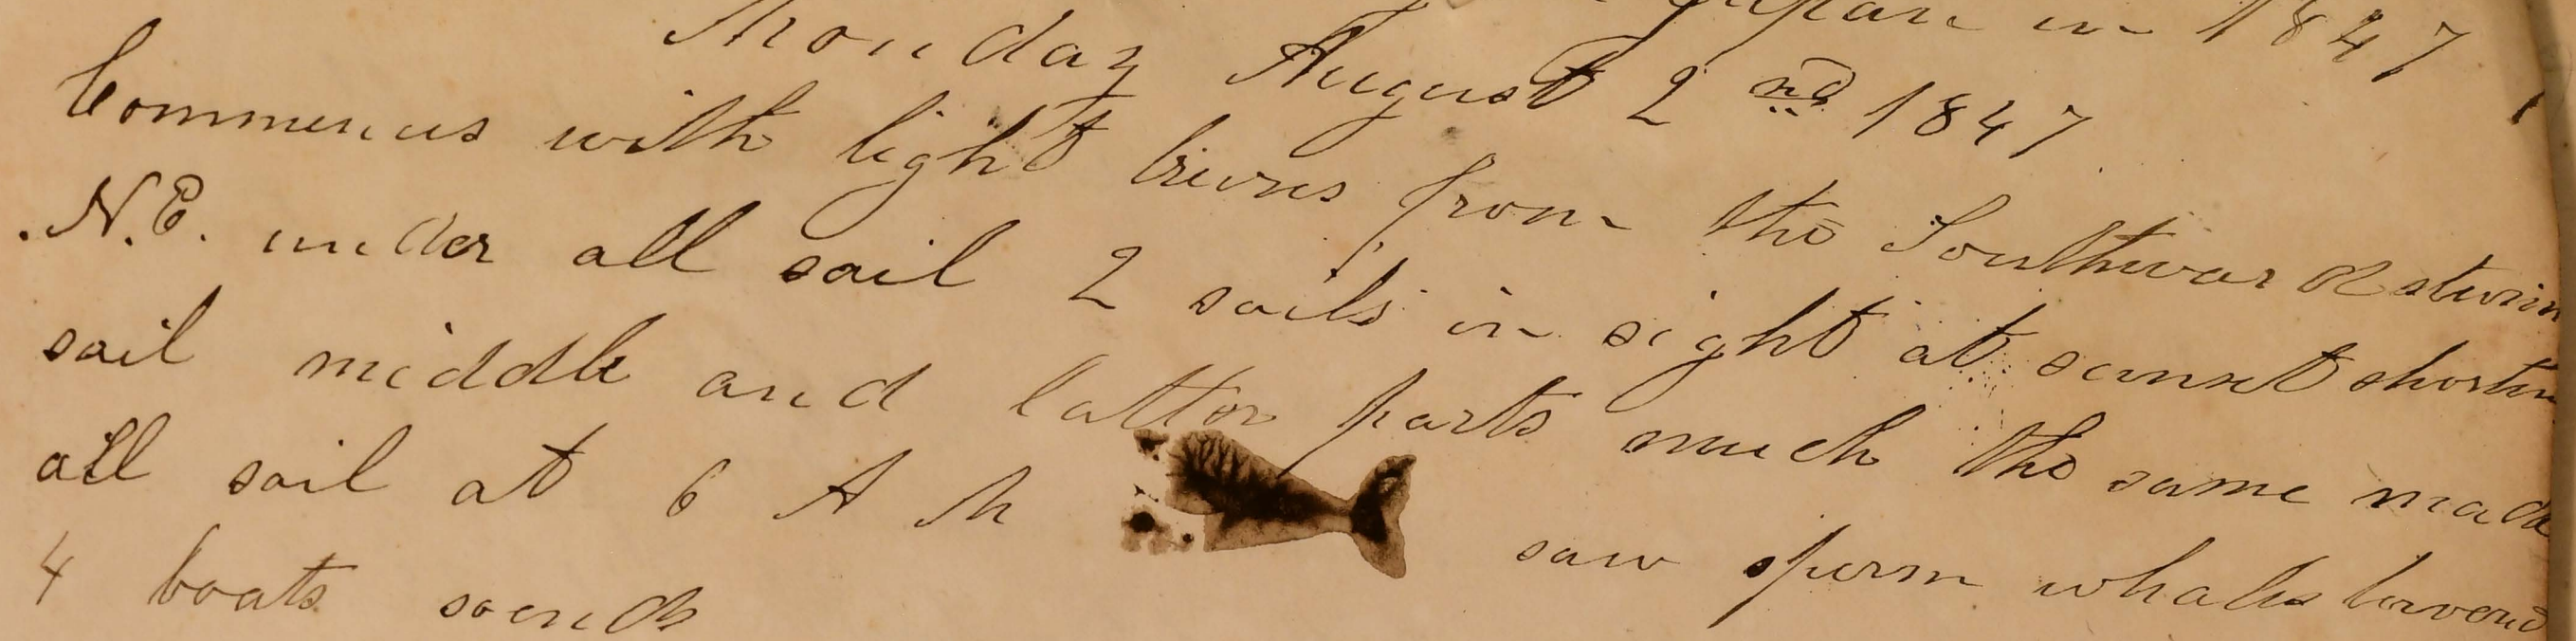 Japan in 1847
Monday August 2nd 1847
Commences with light brieses from the Southward sturin
N.E. under all sail 2 sails in sight at sunset shorten
sail middle and latter parts much the same made
all sail at 6 A M saw sperm whales lowerd
4 boats